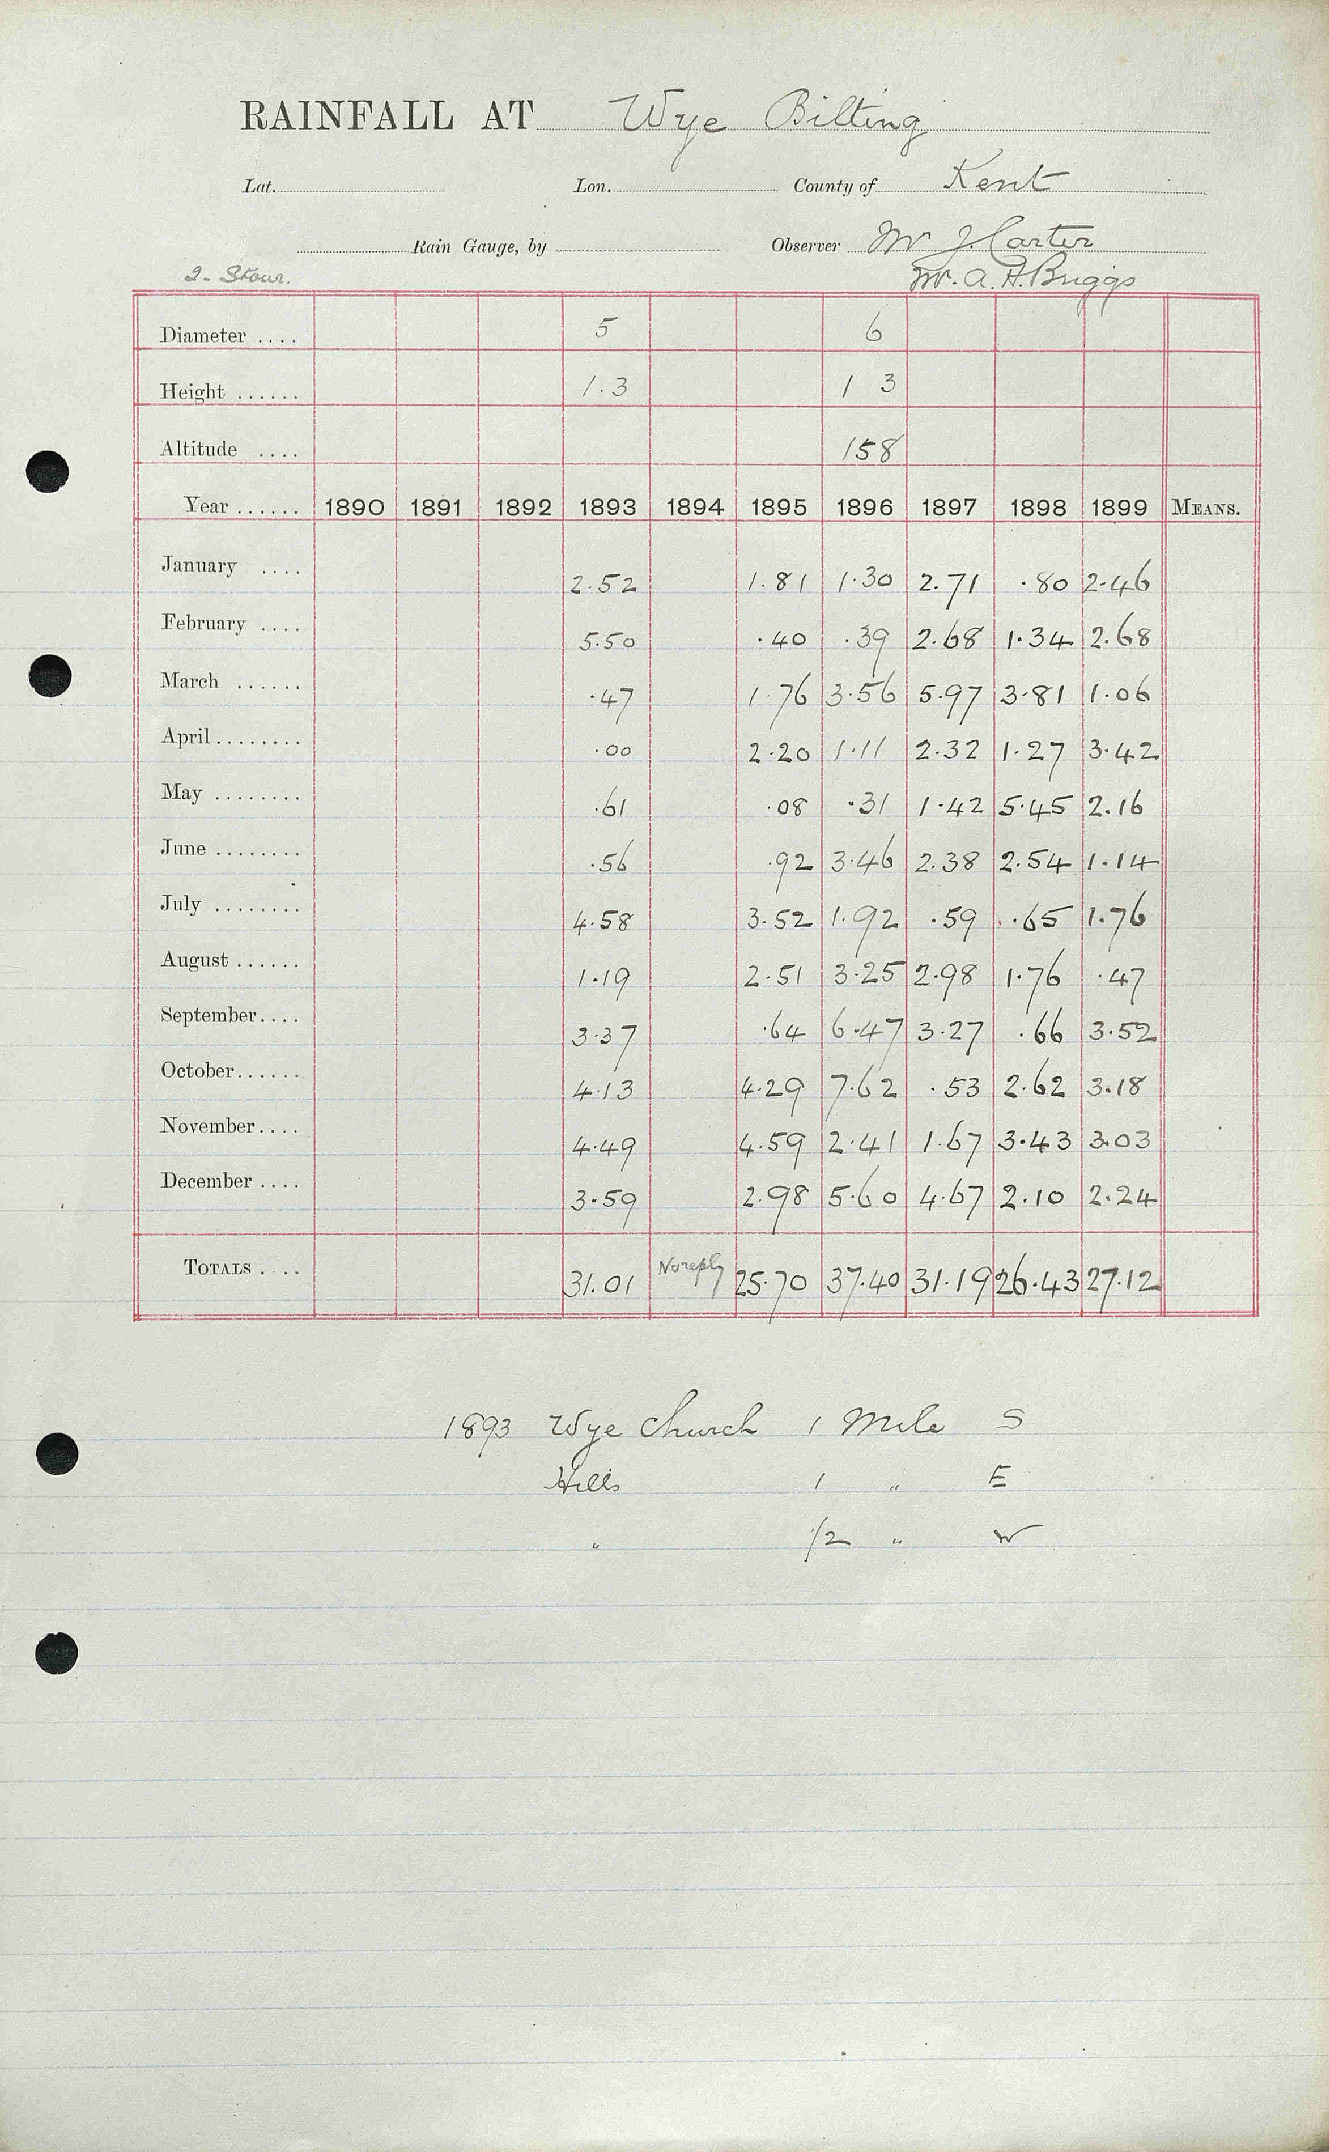 RAINFALL AT Wye Bilting
Lat. Lon. County of Kent
Rain Gauge, by Observer Mr J. Carter
2- Stour. Mr. A. H. Briggs
Diameter .... 5 6
Height ...... 1.3 1 3
Altitude .... 158
Year ...... 1890 1891 1892 1893 1894 1895 1896 1897 1898 1899 MEANS.
January .... 2.52 1.81 1.30 2.71 .80 2.46
February .... 5.50 .40 .39 2.68 1.34 2.68
March ...... .47 1.76 3.56 5.97 3.81 1.06
April ........ .00 2.20 1.11 2.32 1.27 3.42
May ........ .61 .08 .31 1.42 5.45 2.16
June ........ .56 .92 3.46 2.38 2.54 1.14
July ........ 4.58 3.52 1.92 .59 .65 1.76
August ...... 1.19 2.51 3.25 2.98 1.76 .47
September.... 3.37 .64 6.47 3.27 .66 3.52
October...... 4.13 4.29 7.62 .53 2.62 3.18
November.... 4.49 4.59 2.41 1.67 3.43 3.03
December .... 3.59 2.98 5.60 4.67 2.10 2.24
TOTALS .... 31.01 No reply 25.70 37.40 31.19 26.43 27.12
1893 Wye Church 1 Mile S
Hills 1 " E
" 1/2 " W